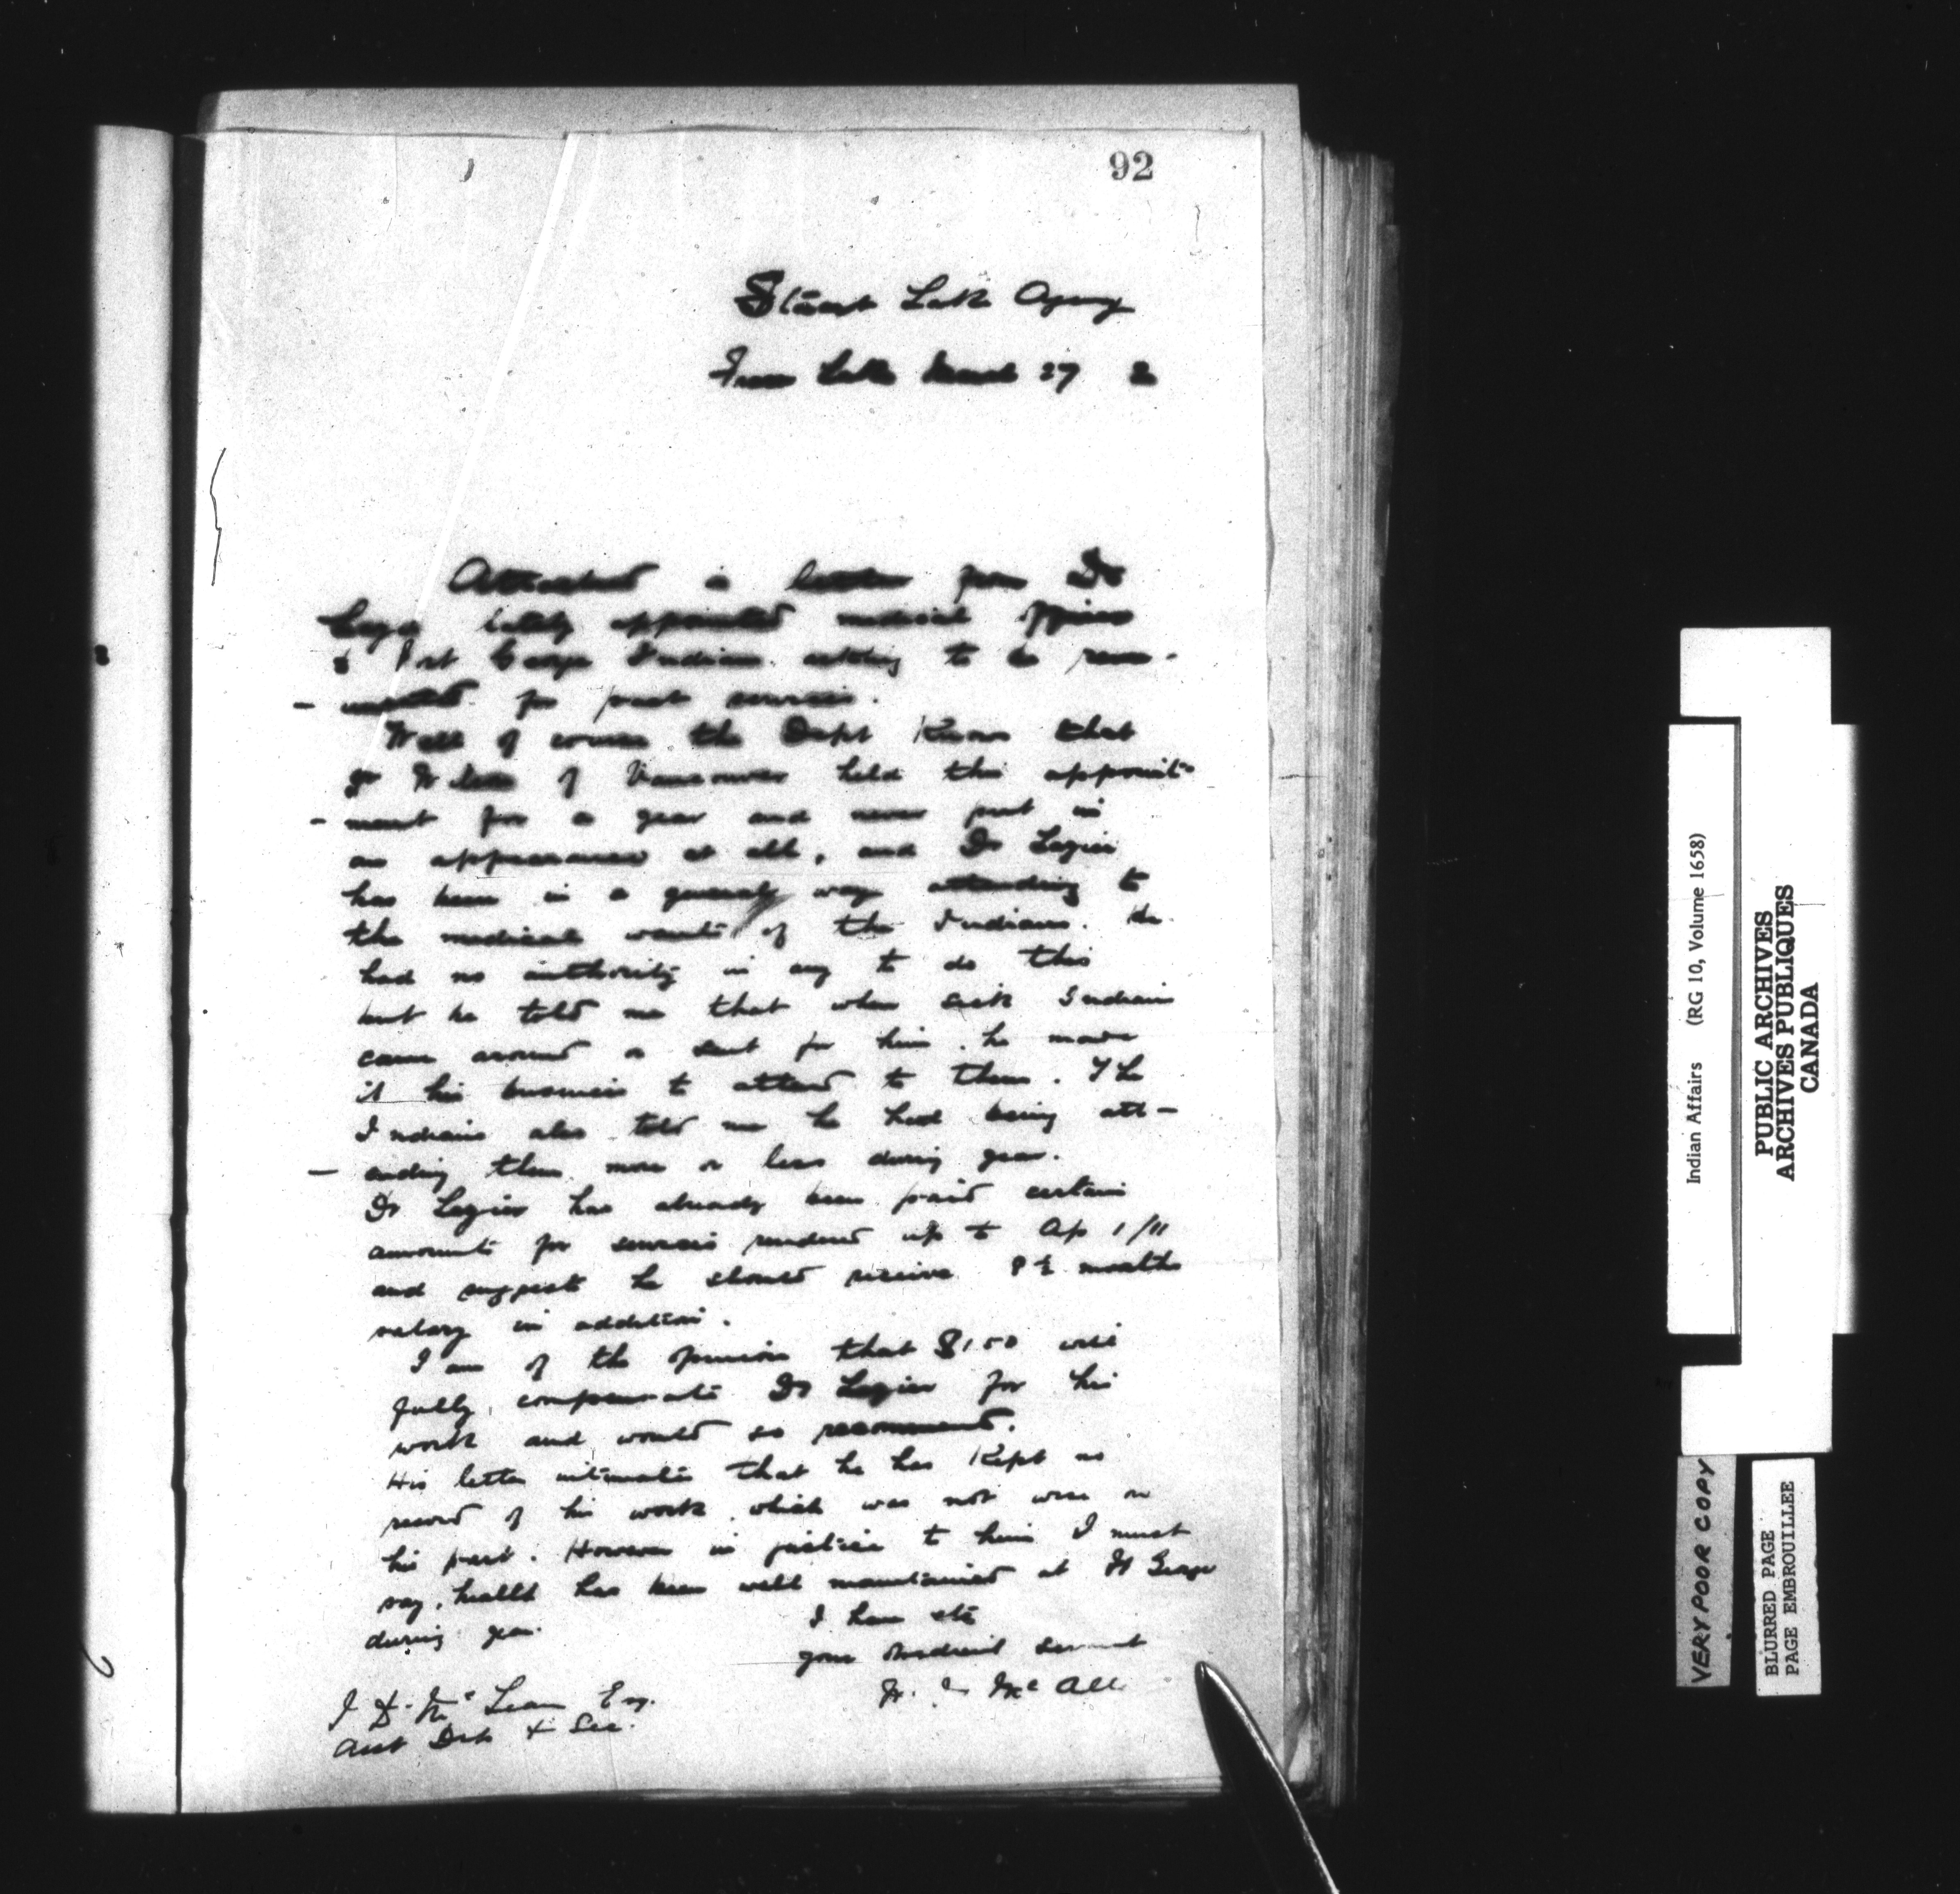 92
Stuart Lake Agency
Fraser Lake March 27 2
Attached is letter from Dr
Lazier lately appointed medical officer
to Fort George Indians asking to be remu-
- nerated for past services.
Well of course the Dept Knows that
of Vancouver held this appoint-
- ment for a year and never put in
an appearance at all, and Dr Lazier
has been in a general way attending to
the medical wants of the Indians. He
had no authority in any to do this
but he told me that when sick Indians
came around or sent for him, he made
it his business to attend to them. The
Indians also told me he had being att-
- ending them more or less during year.
Dr Lazier has already been paid certain
amounts for services rendered up to Ap 1/11
and suggests he should receive months
salary in addition.
I am of the opinion that $150 will
fully compensate Dr Lazier for his
work and would so recommend.
His letter intimates that he has Kept no
record of his work which was not wise on
his part. However in justice to him I must
say, health has been well maintained at Ft George
during year.
I have etc
your obedient servant
W. J. McAll
J. D. McLean Esq.
Asst Dep & Sec.
Indian Affairs (RG 10, Volume 1658)
PUBLIC ARCHIVES
ARCHIVES PUBLIQUES
CANADA
VERY POOR COPY
BLURRED PAGE
PAGE EMBROUILLEE